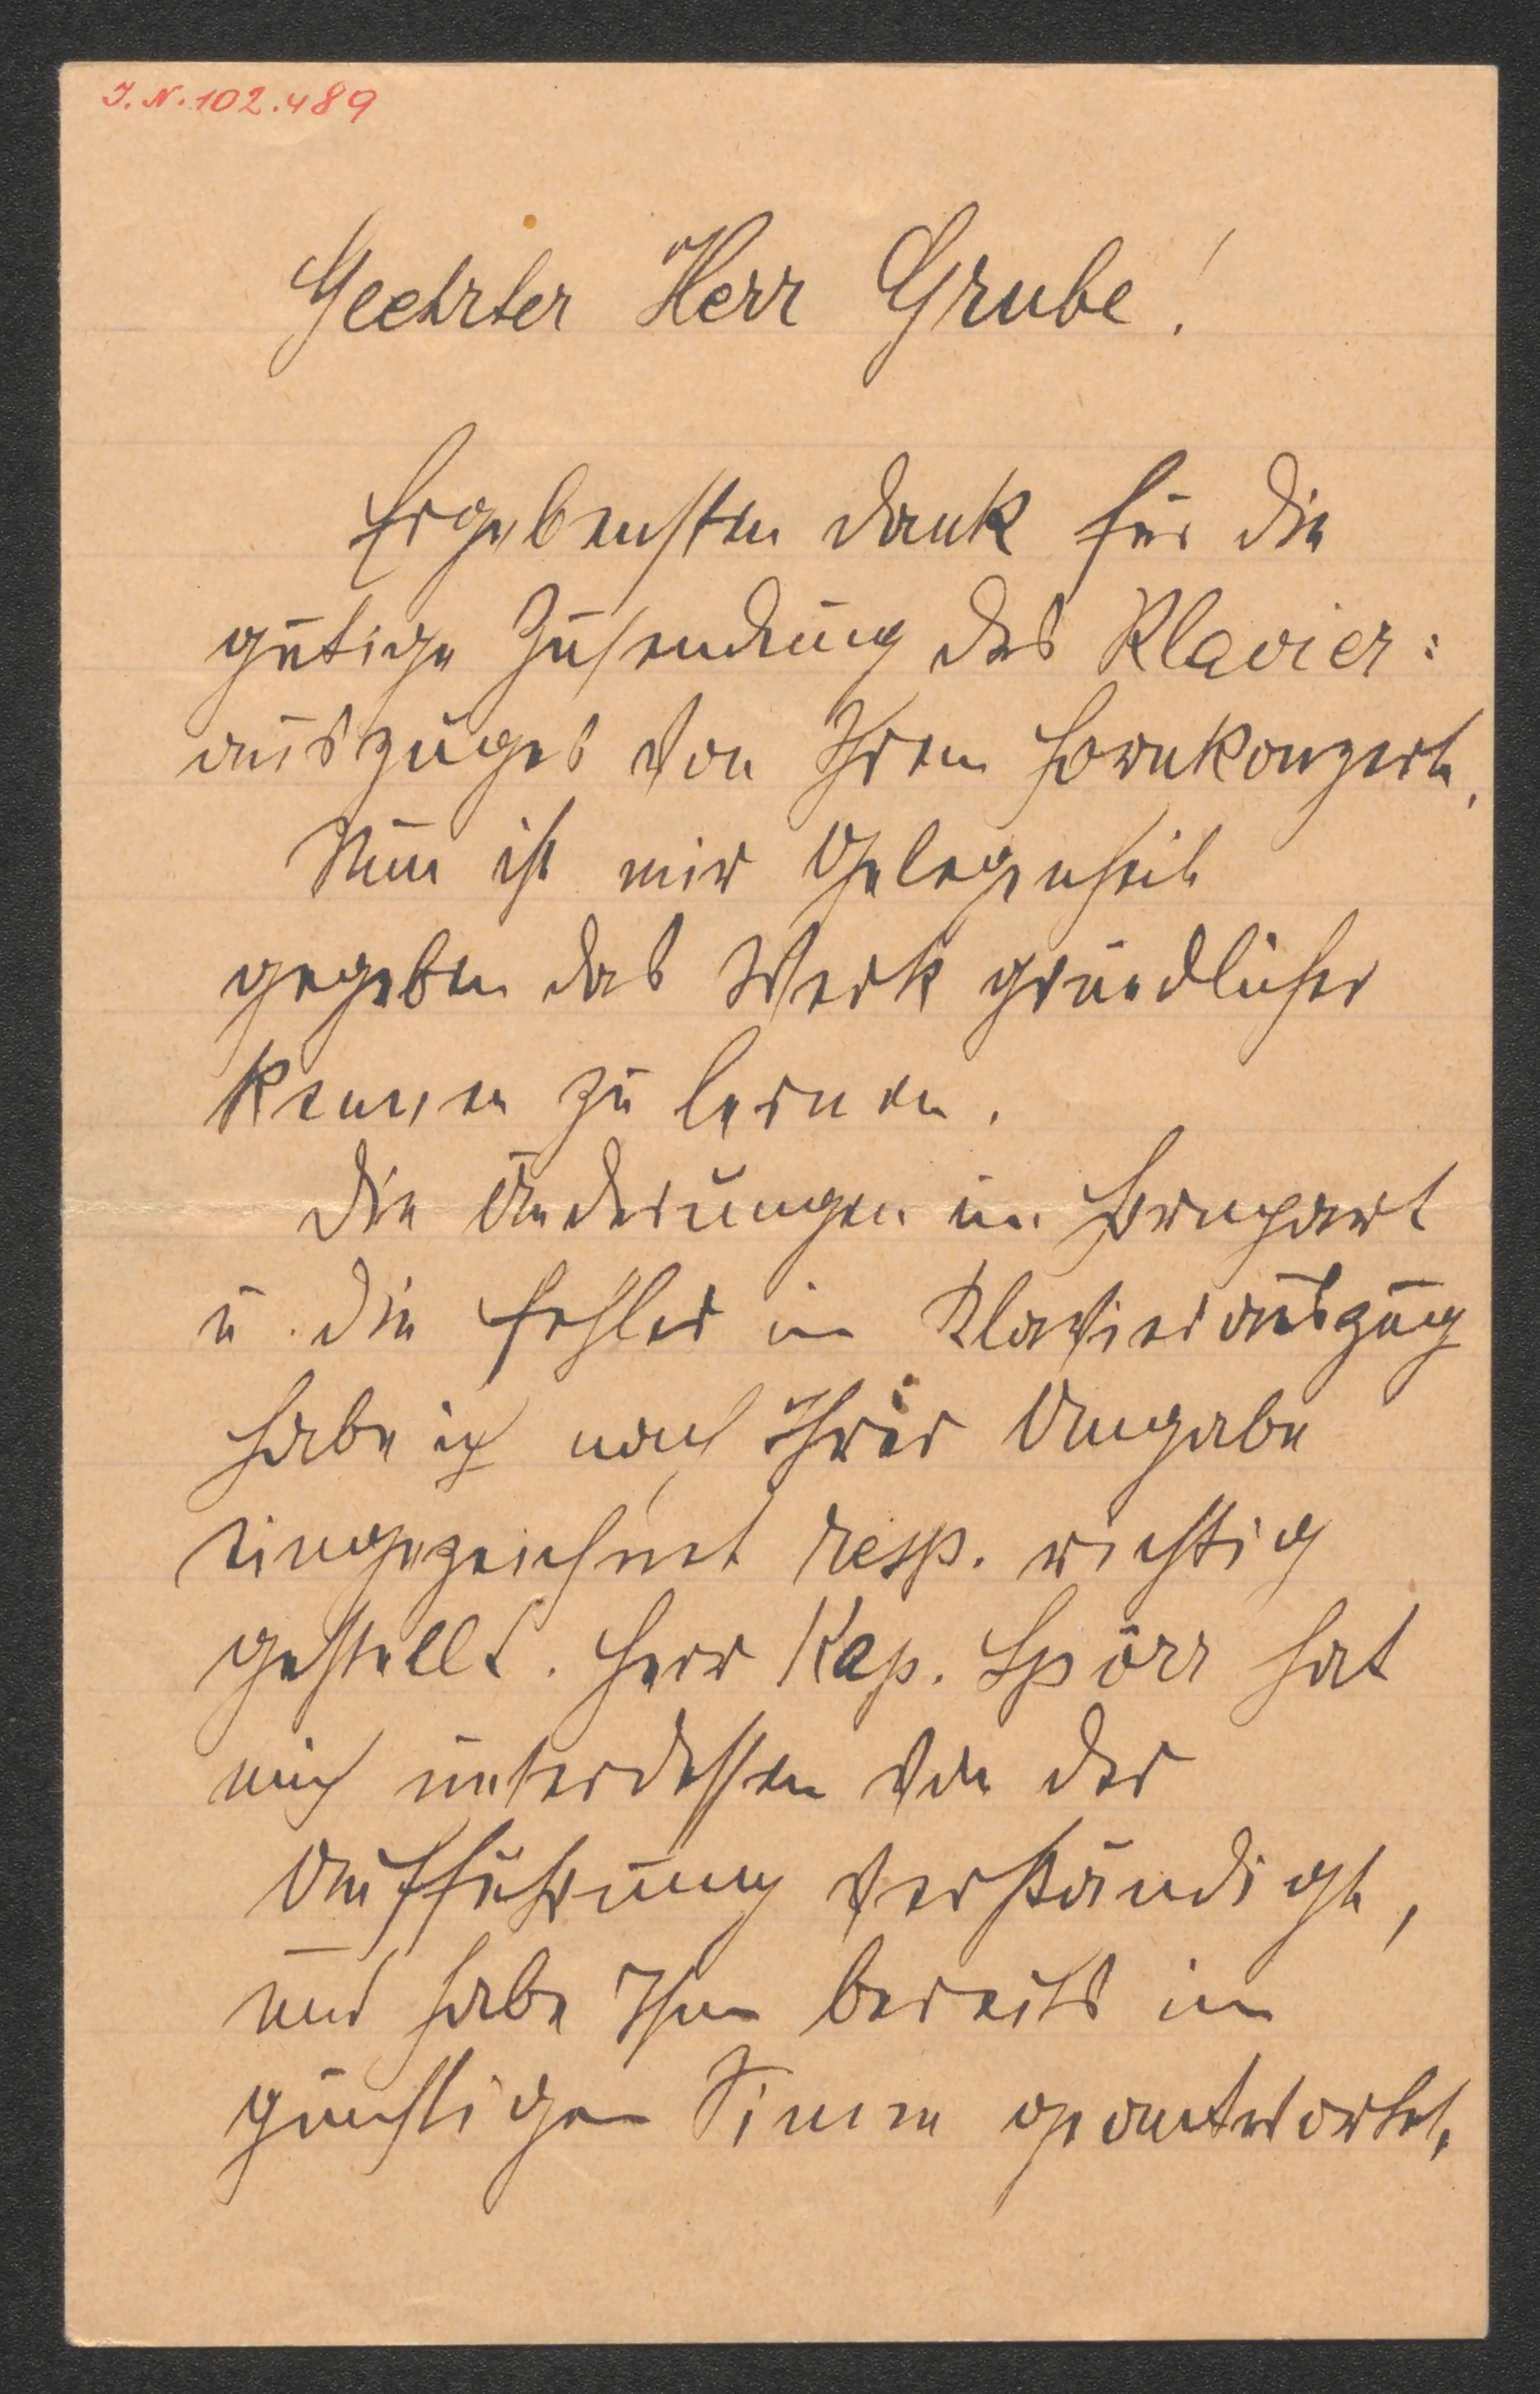 I. N. 102.489
Geehrter Herr Grube!
Ergebensten Dank für die
gütige Zusendung des Klavier:
auszuges von Ihrem Hornkonzert.
Nun ist mir Gelegenheit
gegeben das Werk gründlicher
kennen zu lernen.
Die Änderungen im Hornpart
u. die Fehler im Klavierauszug
habe ich nach Ihrer Angabe
eingezeichnet resp. richtig
gestellt. Herr Kap. Spörr hat
mich unterdessen von der
Aufführung verständigt,
und habe Ihm bereits im
günstigen Sinne geantwortet.